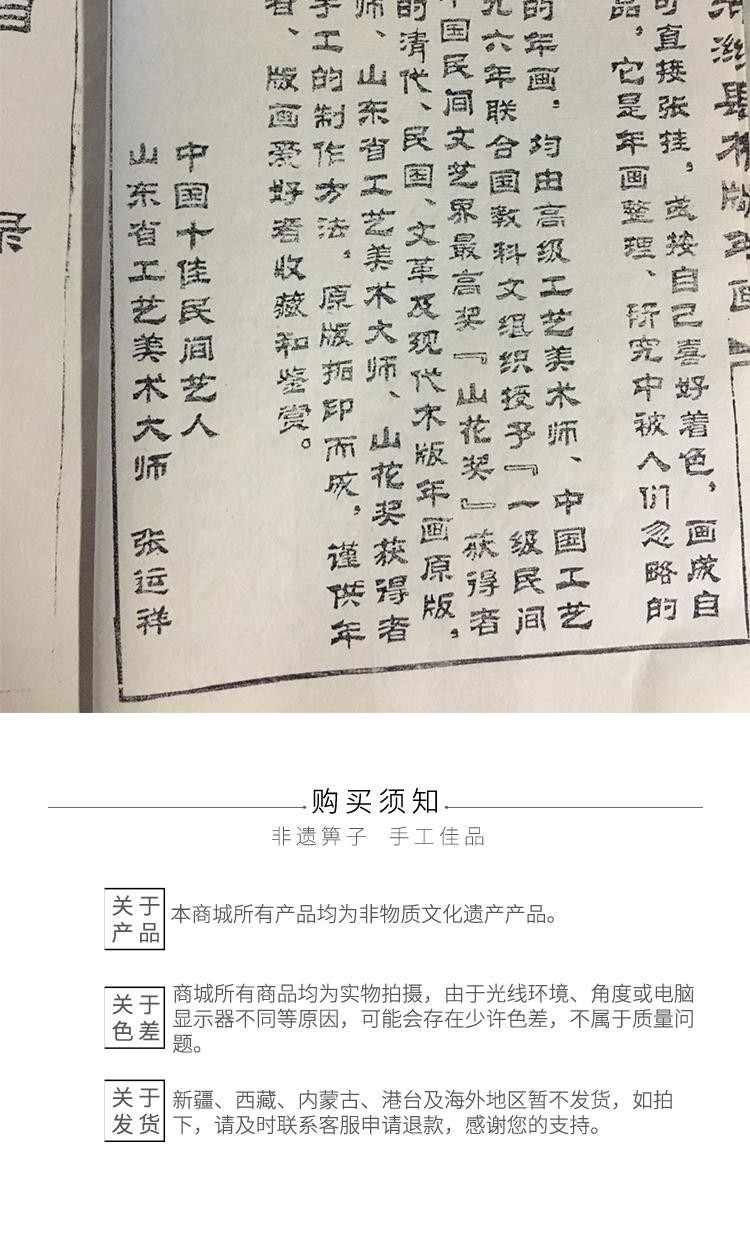 潍县木版年画
可直接张挂，或按自己喜好着色，画成自
品，它是年画整理、研究中被人们忽略的
的年画，均由高级工艺美术师、中国工艺
九六年联合国教科文组织授予『一级民间
中国民间文艺界最高奖『山花奖』获得者
的清代、民国、文革及现代木版年画原版，
师、山东省工艺美术大师、山花奖获得者
手工的制作方法，原版拓印而成，谨供年
者、版画爱好者收藏和鉴赏。
中国十佳民间艺人
山东省工艺美术大师 张运祥
目
录
购买须知
非遗箅子 手工佳品
关于
产品
本商城所有产品均为非物质文化遗产产品。
关于
色差
商城所有商品均为实物拍摄，由于光线环境、角度或电脑
显示器不同等原因，可能会存在少许色差，不属于质量问
题。
关于
发货
新疆、西藏、内蒙古、港台及海外地区暂不发货，如拍
下，请及时联系客服申请退款，感谢您的支持。